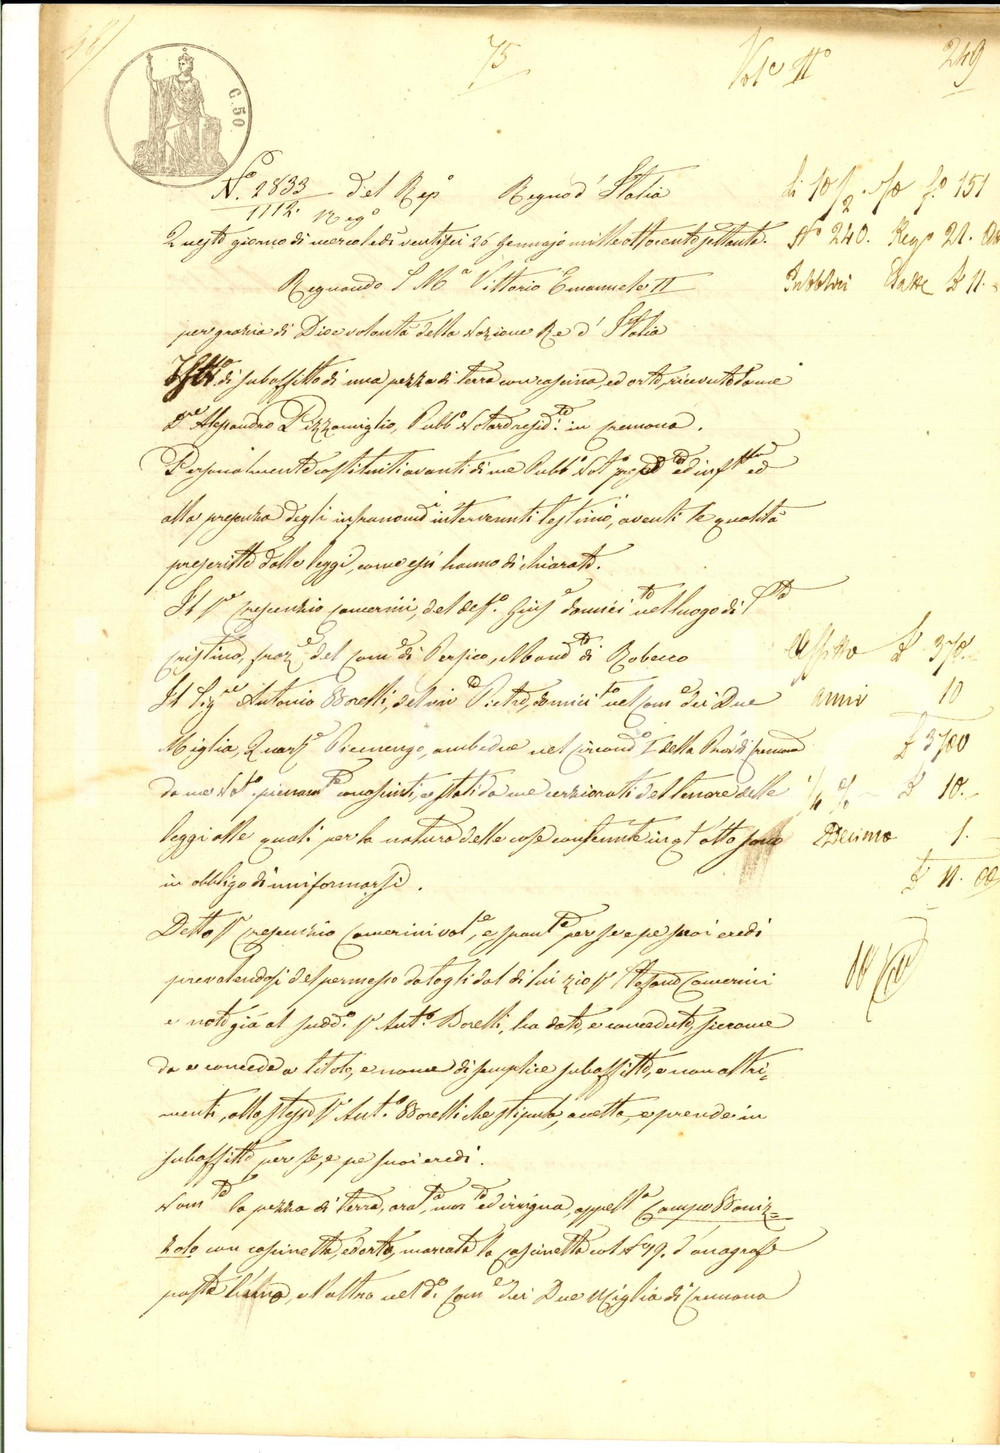 75
Vol.e II°
249
C. 50
N.° 2833 del Rep.° Regno d'Italia
1112. Reg.°
Questo giorno di mercoledì ventisei 26 gennajo mille ottocento settanta.
Regnando S. M.a Vittorio Emanuele II
per grazia di Dio e volontà della Nazione Re d'Italia
di subaffitto di una pezza di terra con cascina, ed orto, ricevuto da me
D.re Alessandro Pizzamiglio, Pubb.° Not.° resid.te in Cremona.
Personalmente costituiti avanti di me Pubb.° Not.° ed infr.tto ed
alla presenza degli infranom.i intervenuti testimoni, aventi le qualità
prescritte dalle leggi, come essi hanno dichiarato.
Il S.r Crescenzio Camerini, del Gius.e domicil.to nel luogo di S.ta
Cristina, fraz.e del Com.e di Persico, Mand.to di Robecco
Il Sig.re Antonio Borelli, del viv.te Pietro, domicil.to nel Com.e dei Due
Miglia, Quart.e Picenengo, ambedue nel Circond.° I della Prov. di Cremona
da me Not.° pienam.te conosciuti, e stati da me cerziorati del tenore delle
leggi alle quali per la natura delle cose contenute in q.to atto sono
in obbligo di uniformarsi.
Detto S.r Crescenzio Camerini vol.te, e spont.te per se e pe' suoi eredi
prevalendosi del permesso datogli dal di lui zio S.r Stefano Camerini
e noto già al sudd.° S.r Ant.° Borelli, ha dato, e conceduto, siccome
da e concede a titolo, e nome di semplice subaffitto, e non altri-
menti, allo stesso S.r Ant.° Borelli che stipula, accetta, e prende in
subaffitto per se, e pe' suoi eredi.
Nom.te la pezza di terra, arat.a, ed irrigua, appell.ta Campo Boniz=
zolo con cascinetta, ed orto, marcata la cascinetta col N.° 19. d'anagrafe
posta l'una, e l'altra nel d.° Com.e dei Due Miglia di Cremona
f.° 151
N.° 240. Reg.° 21. Atti
Pubblici Tasse £ 11.
Affitto £ 370.
anni 10
£ 3700
1/4 % £ 10.
Decimo 1.
£ 11. 00